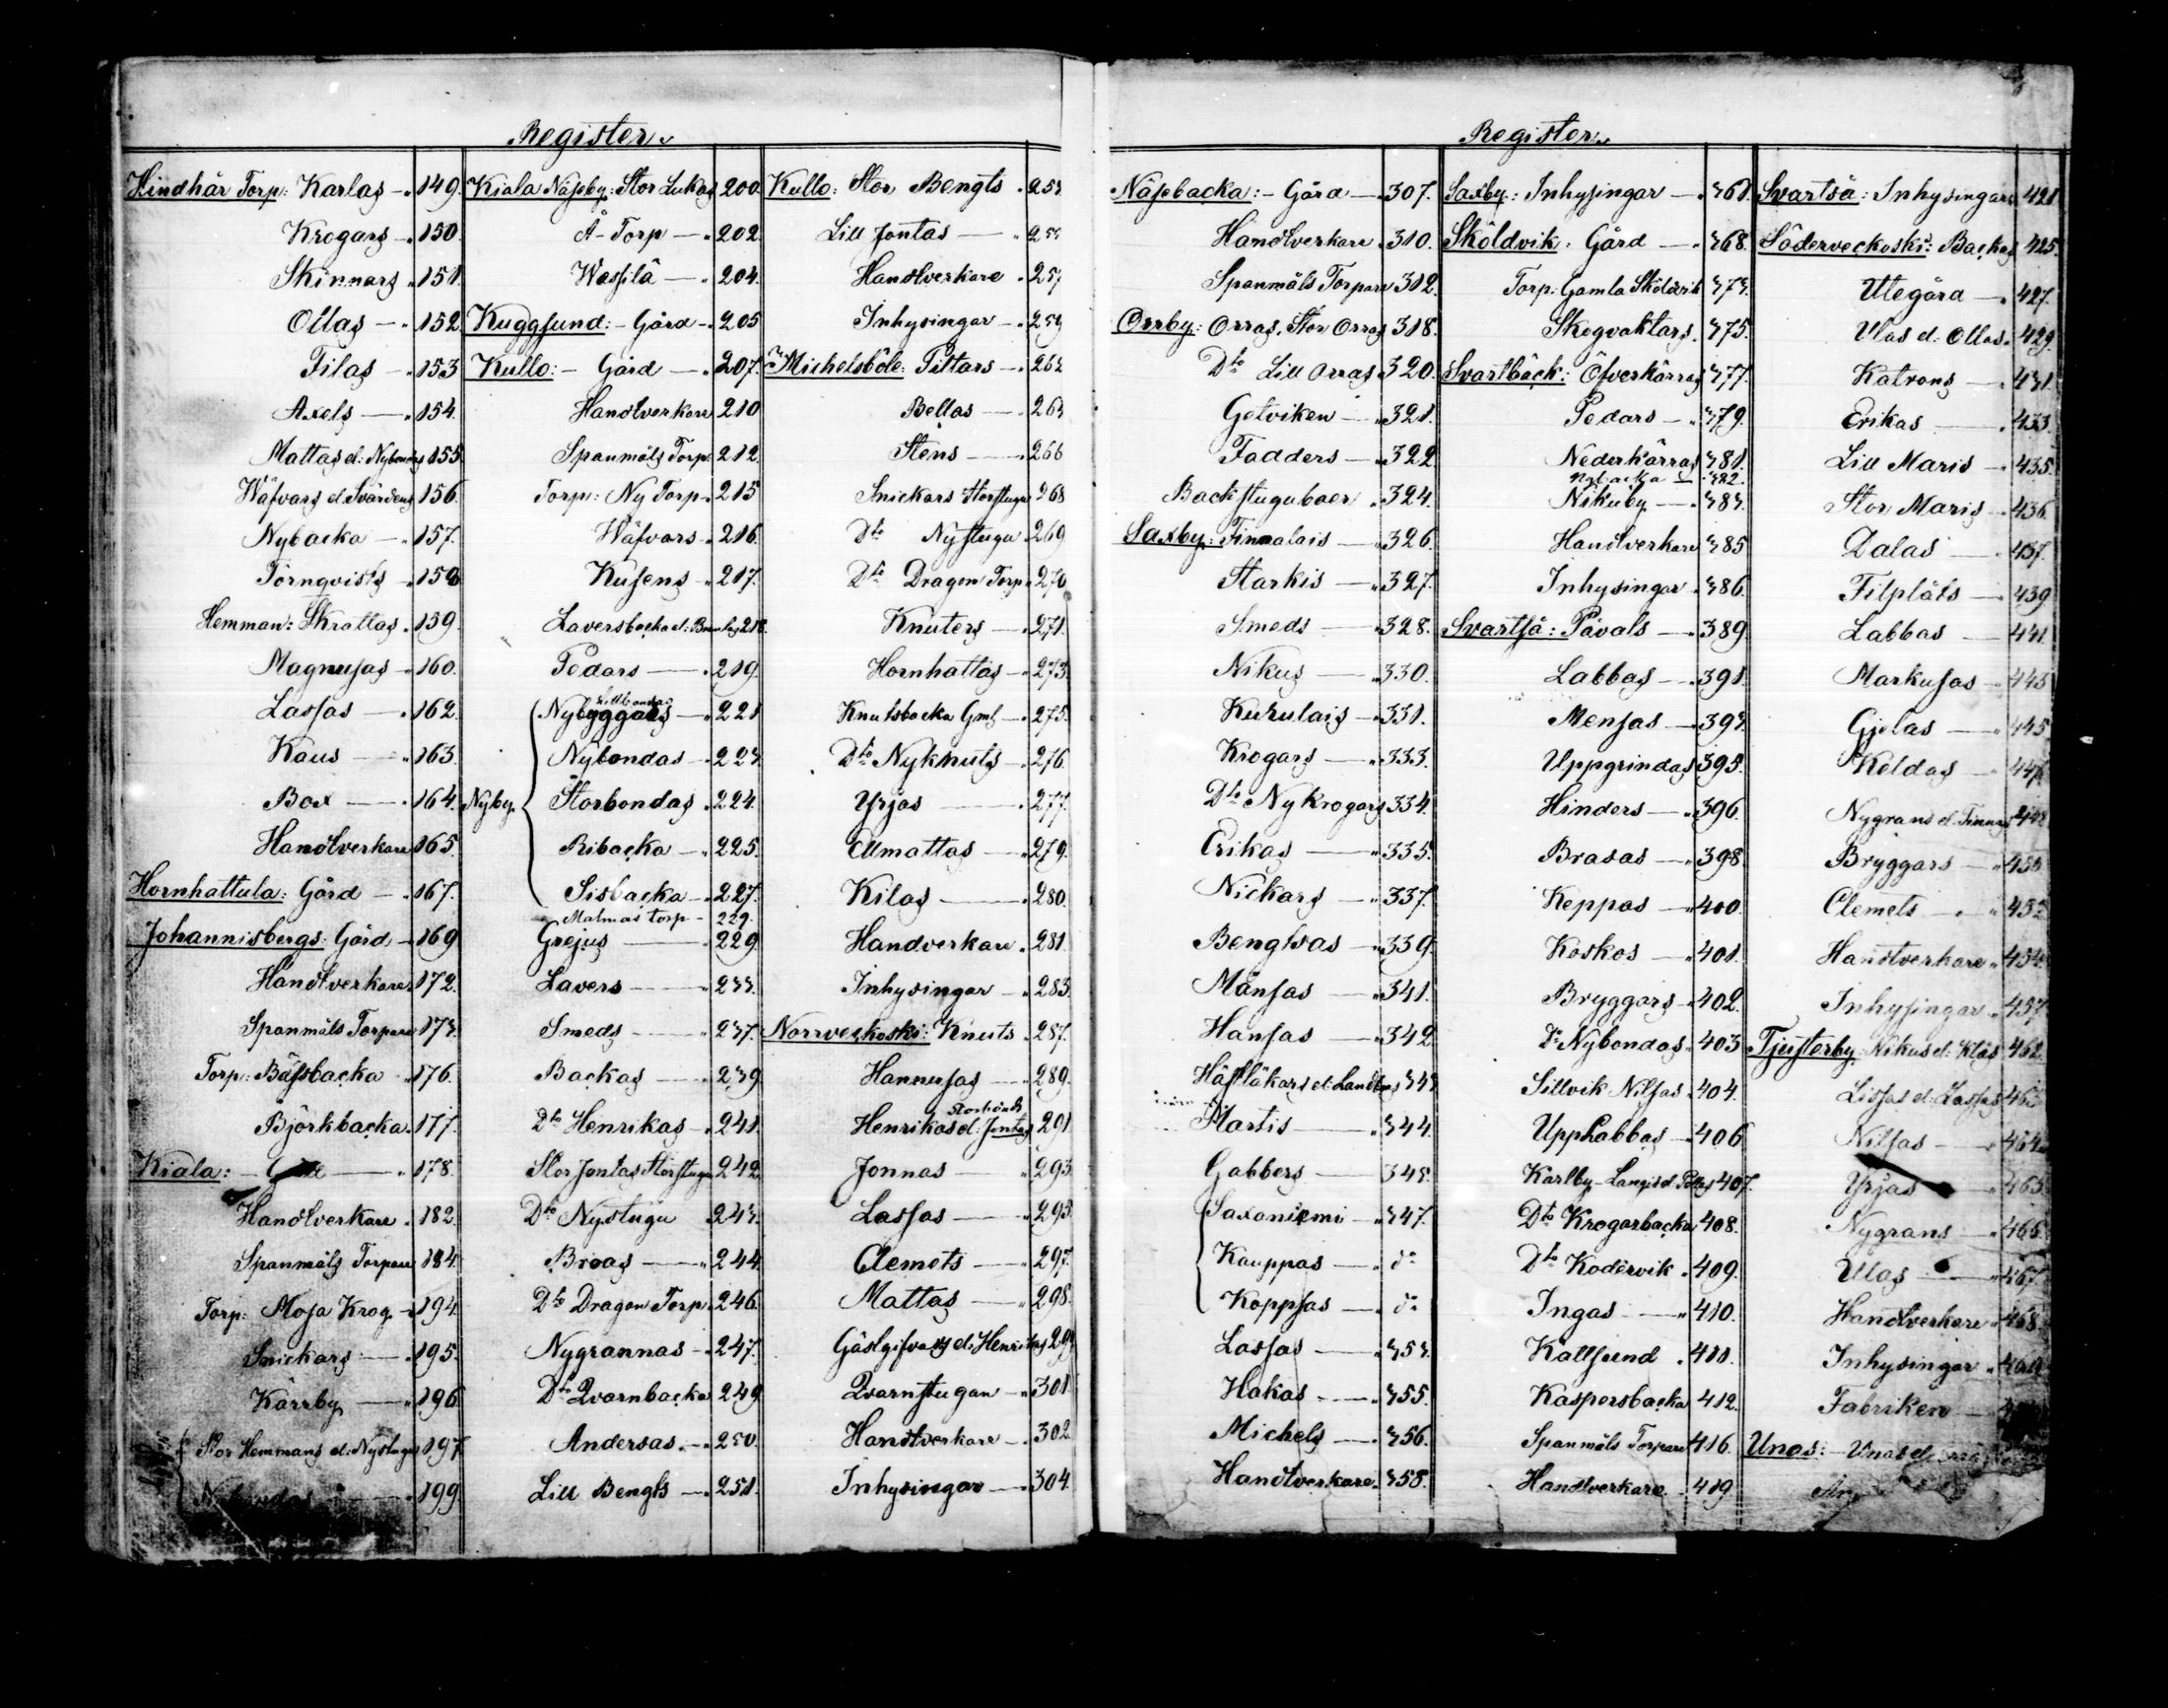 Register.
Hindhår Torp: Karlas 149.
Krogars 150.
Skinnars 151.
Ollas 152
Filas 153
Axels 154.
Mattas el: Nybondas 155
Wäfvars el. Svärdens 156.
Nybacka 157.
Törnqvists 158
Hemman: Skrallas 159.
Magnusas 160.
Lassas 162.
Kaus 163.
Box 164.
Handtverkare 165.
Hornhattula: Gård 167.
Johannisbergs: Gård 169
Handtverkare 172.
Spanmåls Torpare 173.
Torp: Båssbacka 176.
Björkbacka 177.
Kiala: 178.
Handtverkare 182.
Spanmåls Torpare 184.
Torp: Moja Krog 194.
Snickars 195.
Kärrby 196
Stor Hemmans el: Nystugas 197
199.
Kiala Näseby: Stor Lukas 200.
Å-Torp 202.
Wassilä 204.
Kuggsund: Gård 205
Kullo: Gård 207.
Handtverkare 210
Spanmåls Torp 212
Torp: Ny Torp 215
Wäfvars 216.
Kusens 217.
Laversbacka el: 218.
Pedars 219.
Lillbondas
Nybyggars 221
Nybondas 223.
Nyby Storbondas 224.
Ribacka 225.
Sisbacka 227.
Malmas torp 229.
Grejus 229
Lavers 233.
Smeds 237.
Backas 239
Dto Henrikas 241.
Stor Jontas Storstuga 242
Dto Nystuga 243.
Broas 244.
Dto Dragon Torp 246.
Nygrannas 247.
Dto Qvarnbacka 249
Andersas 250.
Lill Bengts 251.
Kullo: Stor Bengts 253
Lill Jontas 255
Handtverkare 257
Inhysingar 259
Michelsböle: Tittars 262
Bellas 264
Stens 266
Snickars Storstuga 268
Dto Nystuga 269
Dto Dragon Torp 270
Knuters 271.
Hornhattas 273
Knutsbacka Gml 275.
Dto Nyknuts 276.
Yrjas 277.
Ellmattas 279.
Kilas 280.
Handverkare 281.
Inhysingar 283.
Norrveckoski: Knuts 287.
Hannusas 289.
Henrikas el: Jontas 291
Jonnas 293
Lassas 295
Clemets 297.
Mattas 298.
Gästgifvars el: Henrikas 299
Qvarnstugan 301
Handtverkare 302
Inhysingar 304.
Register.
Näsebacka: Gård 307.
Handtverkare 310.
Spanmåls Torpare 312.
Orrby: Orras, Stor Orras 318.
Dto Lill Orras 320.
Getviken 321.
Fadders 322
Backstuguboer 324.
Saxby: Finnalais 326.
Starkis 327.
Smeds 328.
Nikus 330.
Kukulais 331.
Krogars 333.
Dto Ny Krogars 334.
Erikas 335.
Nickars 337.
Bengtsas 339.
Månsas 341.
Hansas 342
Hästläkars el: Landbos 343
Martis 344.
Gabbers 345.
Saxaniemi 347.
Kauppas do
Koppsas do
Lassas 353.
Hakas 355.
Michels 356.
Handtverkare 358.
Saxby: Inhysingar 361.
Sköldvik: Gård 368.
Torp: Gamla Sköldvik 373.
Skogvaktars 375.
Svartbäck: Öfverkärras 377.
Pedars 379.
Nederkärras 381.
Nybacka 382.
Nikuby 383.
Handtverkare 385
Inhysingar 386.
Svartså: Påvals 389
Labbas 391.
Mensas 393.
Uppgrindas 395.
Hinders 396.
Brasas 398
Keppas 400.
Koskos 401.
Bryggars 402.
Do Nybondas 403
Sillvik Nilsas 404.
Upplabbas 406
Karlby Langis el. 407.
Dto Krogarbacka 408.
Dto Kodervik 409.
Ingas 410.
Kallsund 411.
Kaspersbacka 412.
Spanmåls Torpare 416.
Handtverkare 419
Svartså: Inhysingar 421
Söderveckoski: Backas 425.
Utegåra 427.
Ulas el: Ollas 429.
Katrons 431.
Erikas 433
Lill Maris 435.
Stor Maris 436.
Dalas 437.
Filpläts 439
Labbas 441
Markusas 443
Gjelas 445
Keldas
Nygrans el. Finnas
Bryggars
Clemets 452
Handtverkare 454
Inhysingar 457
Tjusterby: Nikus el: Klås 462.
Lissas el. Lassas
Nilsas 464.
Yrjas 465
Nygrans 466.
Ulas 467
Handtverkare 468.
Inhysingar
Fabriken
Unas: Unas el.